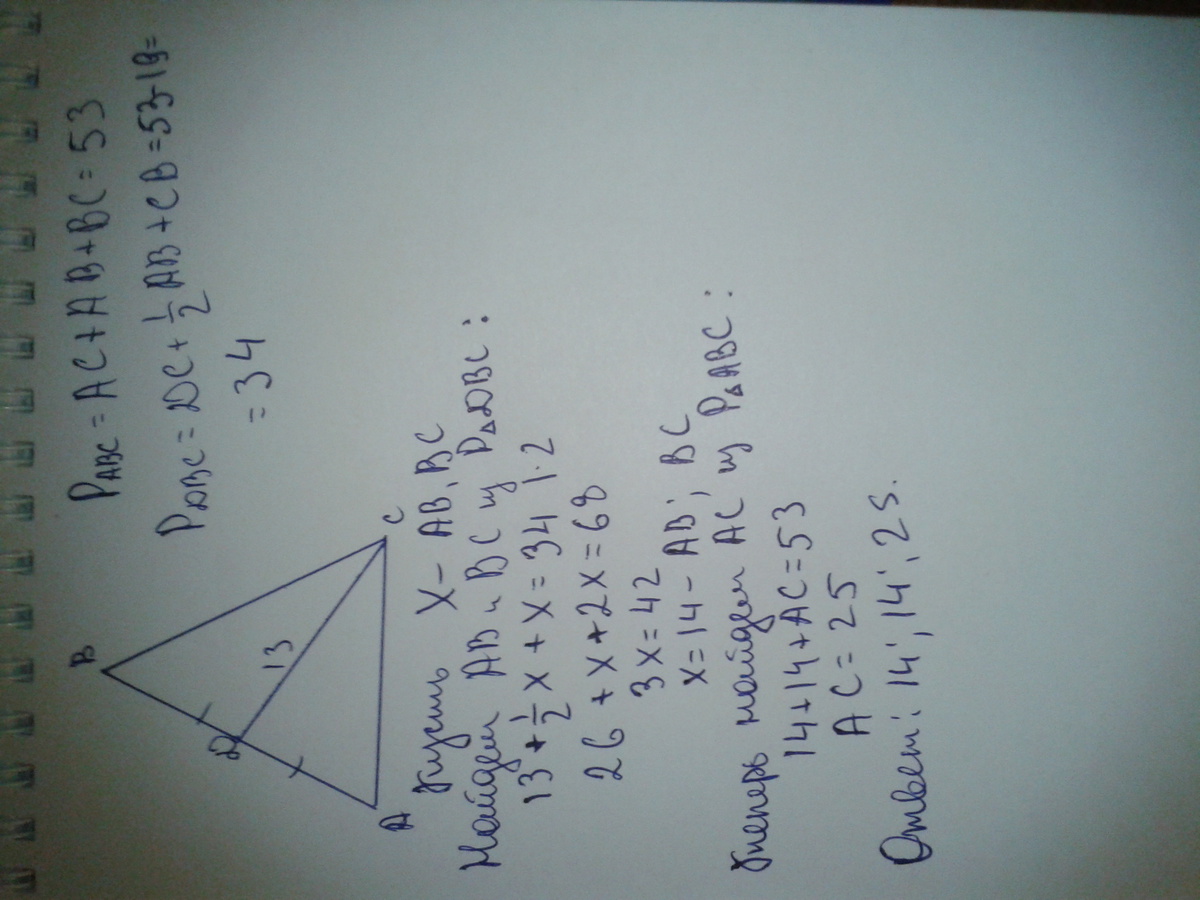 B
D
13
A
C
P ABC = AC + AB + BC = 53
P DBC = DC + 1/2 AB + CB = 53 - 19 =
= 34
Пусть X - AB, BC
Найдем AB и BC из P△DBC :
13 + 1/2 X + X = 34 | · 2
26 + X + 2X = 68
3X = 42
X = 14 - AB; BC
Теперь найдем AC из P△ABC :
14 + 14 + AC = 53
AC = 25
Ответ: 14; 14; 25.